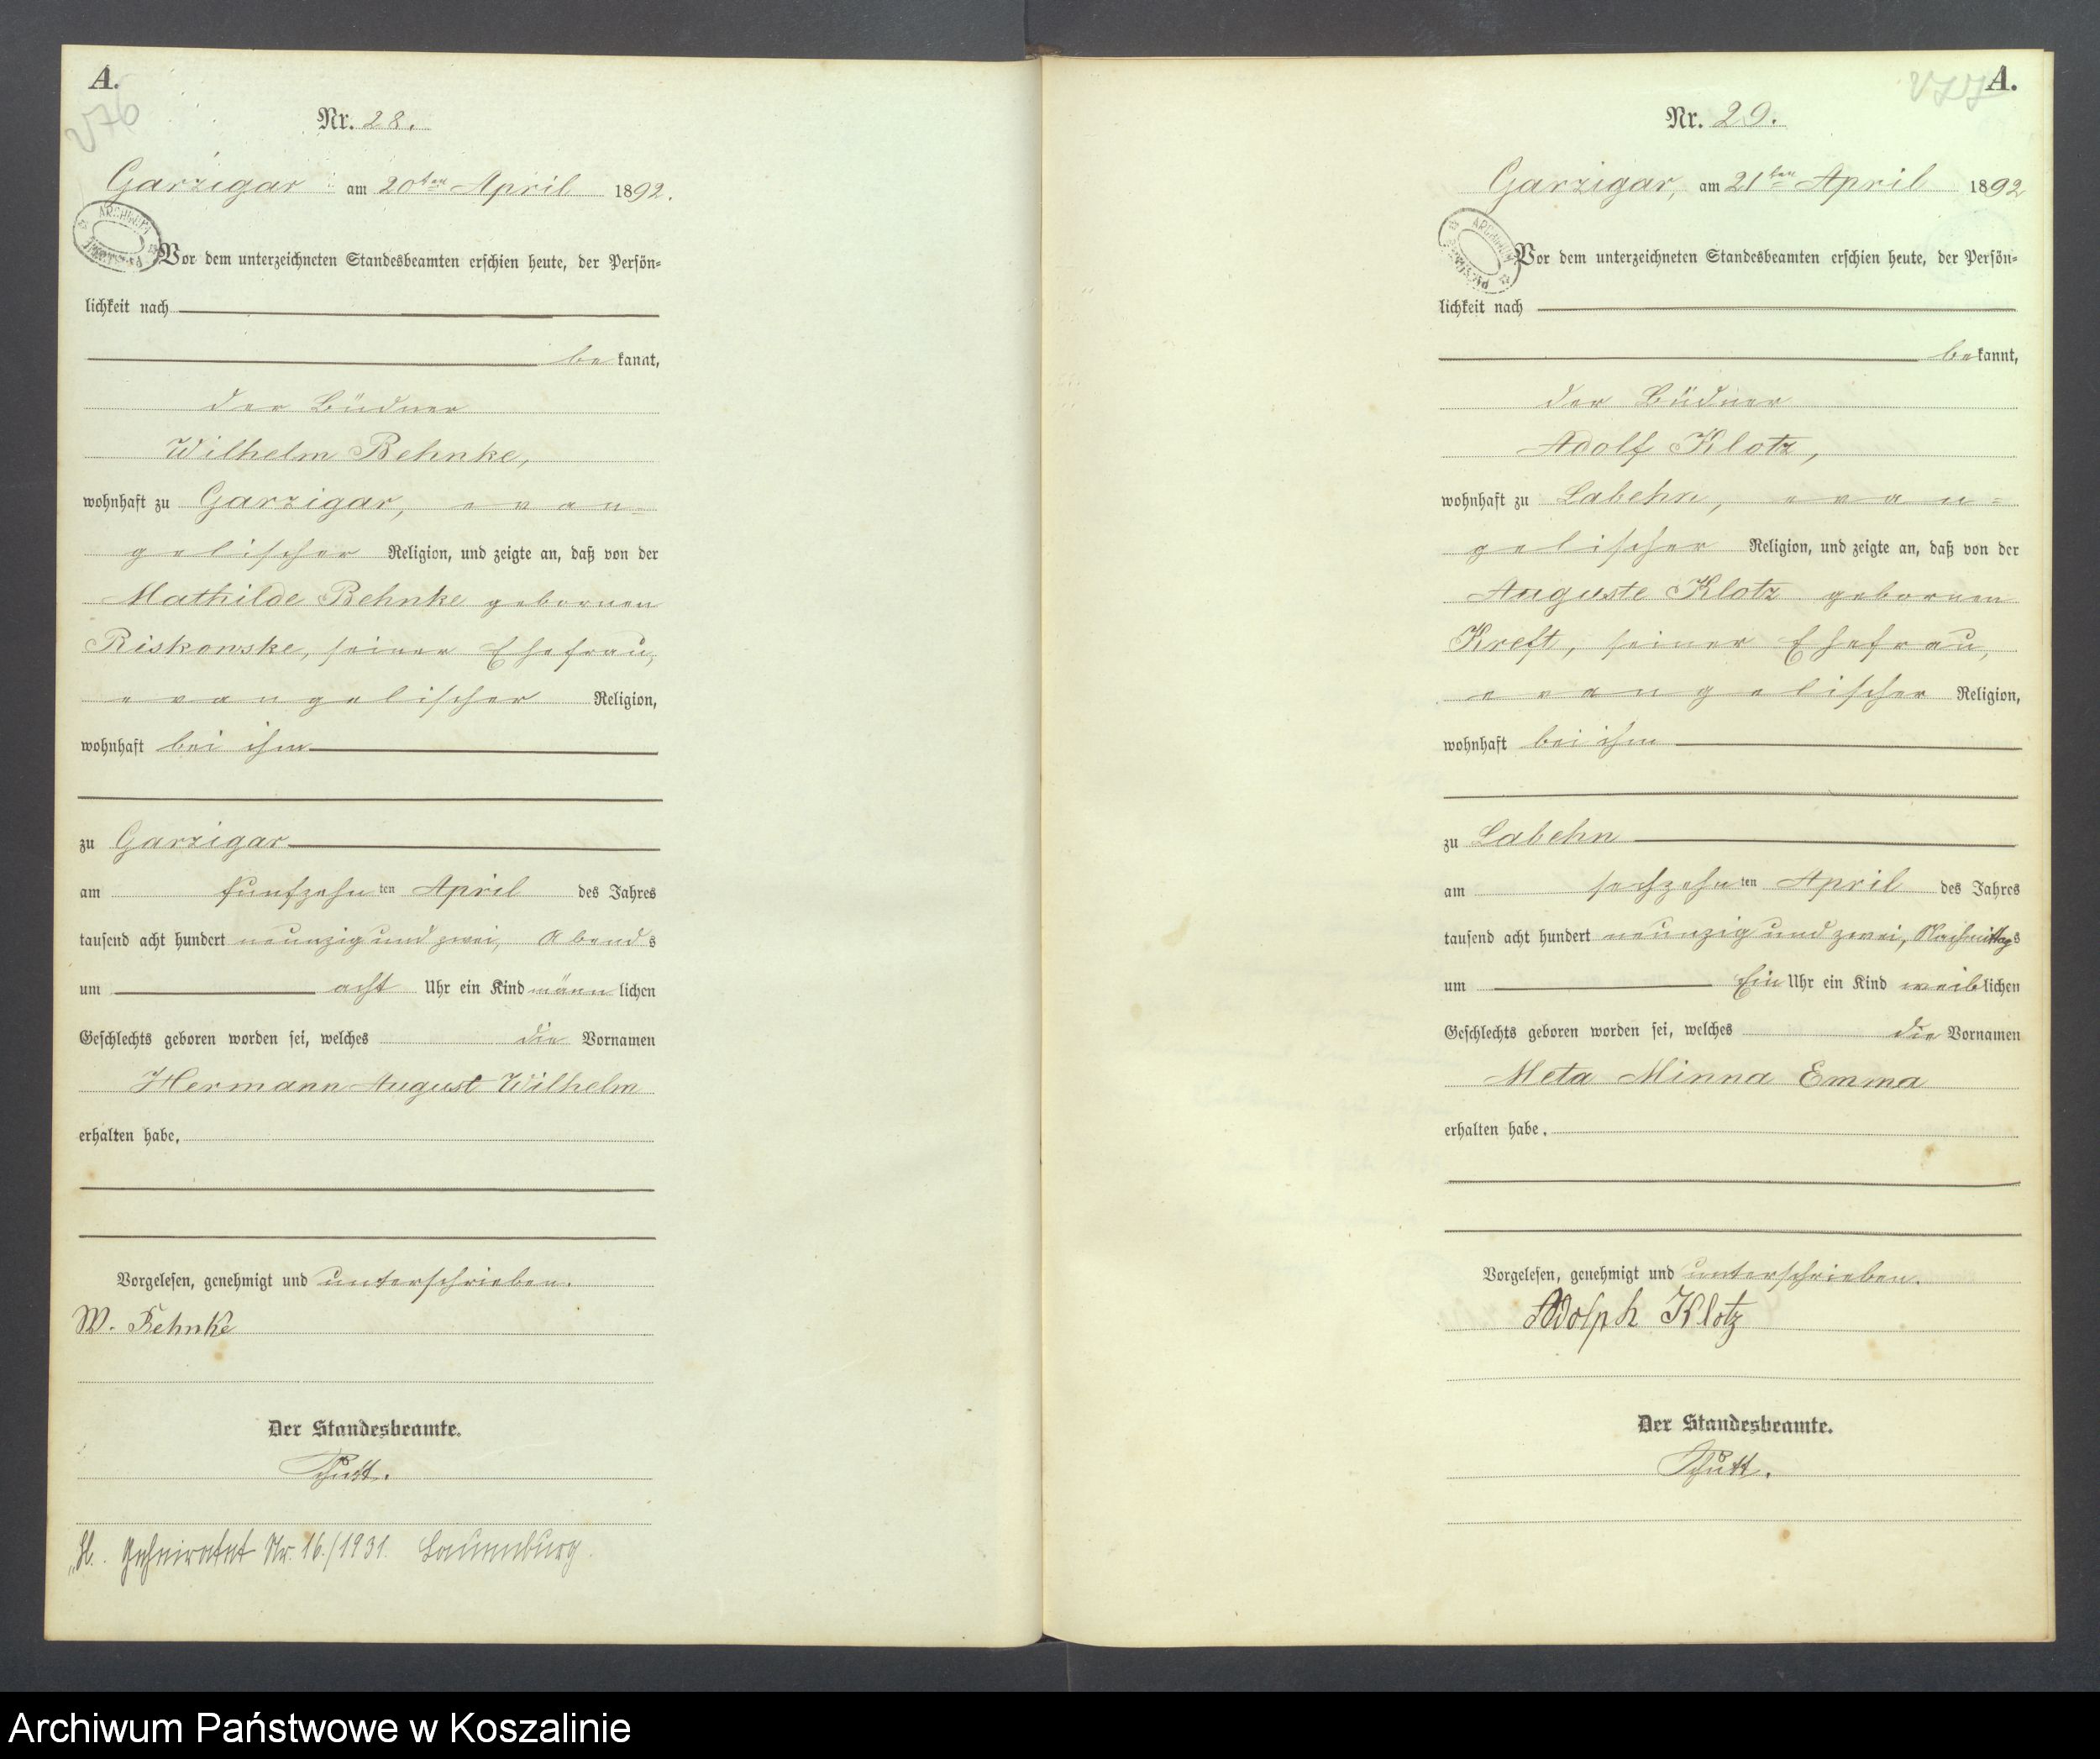 A.
V76
Nr. 28.
Garzigar am 20ten April 1892.
Vor dem unterzeichneten Standesbeamten erschien heute, der Persön-
lichkeit nach
be kannt,
der Büdner
Wilhelm Behnke,
wohnhaft zu Garzigar, evan-
gelischer Religion, und zeigte an, daß von der
Mathilde Behnke gebornen
Riskowske, seiner Ehefrau,
evangelischer Religion,
wohnhaft bei ihm
zu Garzigar
am funfzehn ten April des Jahres
tausend acht hundert neunzig und zwei, Abends
um acht Uhr ein Kind männ lichen
Geschlechts geboren worden sei, welches die Vornamen
Hermann August Wilhelm
erhalten habe.
Vorgelesen, genehmigt und unterschrieben.
W. Behnke
Der Standesbeamte.
Geheiratet Nr. 16./1931. Lauenburg.
A.
Nr. 29.
Garzigar, am 21ten April 1892
Vor dem unterzeichneten Standesbeamten erschien heute, der Persön-
lichkeit nach
be kannt,
der Büdner
Adolf Klotz,
wohnhaft zu Labehn, evan-
gelischer Religion, und zeigte an, daß von der
Auguste Klotz gebornen
Kreft, seiner Ehefrau,
evangelischer Religion,
wohnhaft bei ihm
zu Labehn
am sechzehn ten April des Jahres
tausend acht hundert neunzig und zwei, Nachmittags
um Ein Uhr ein Kind weib lichen
Geschlechts geboren worden sei, welches die Vornamen
Meta Minna Emma
erhalten habe.
Vorgelesen, genehmigt und unterschrieben.
Adolph Klotz
Der Standesbeamte.
Archiwum Państwowe w Koszalinie